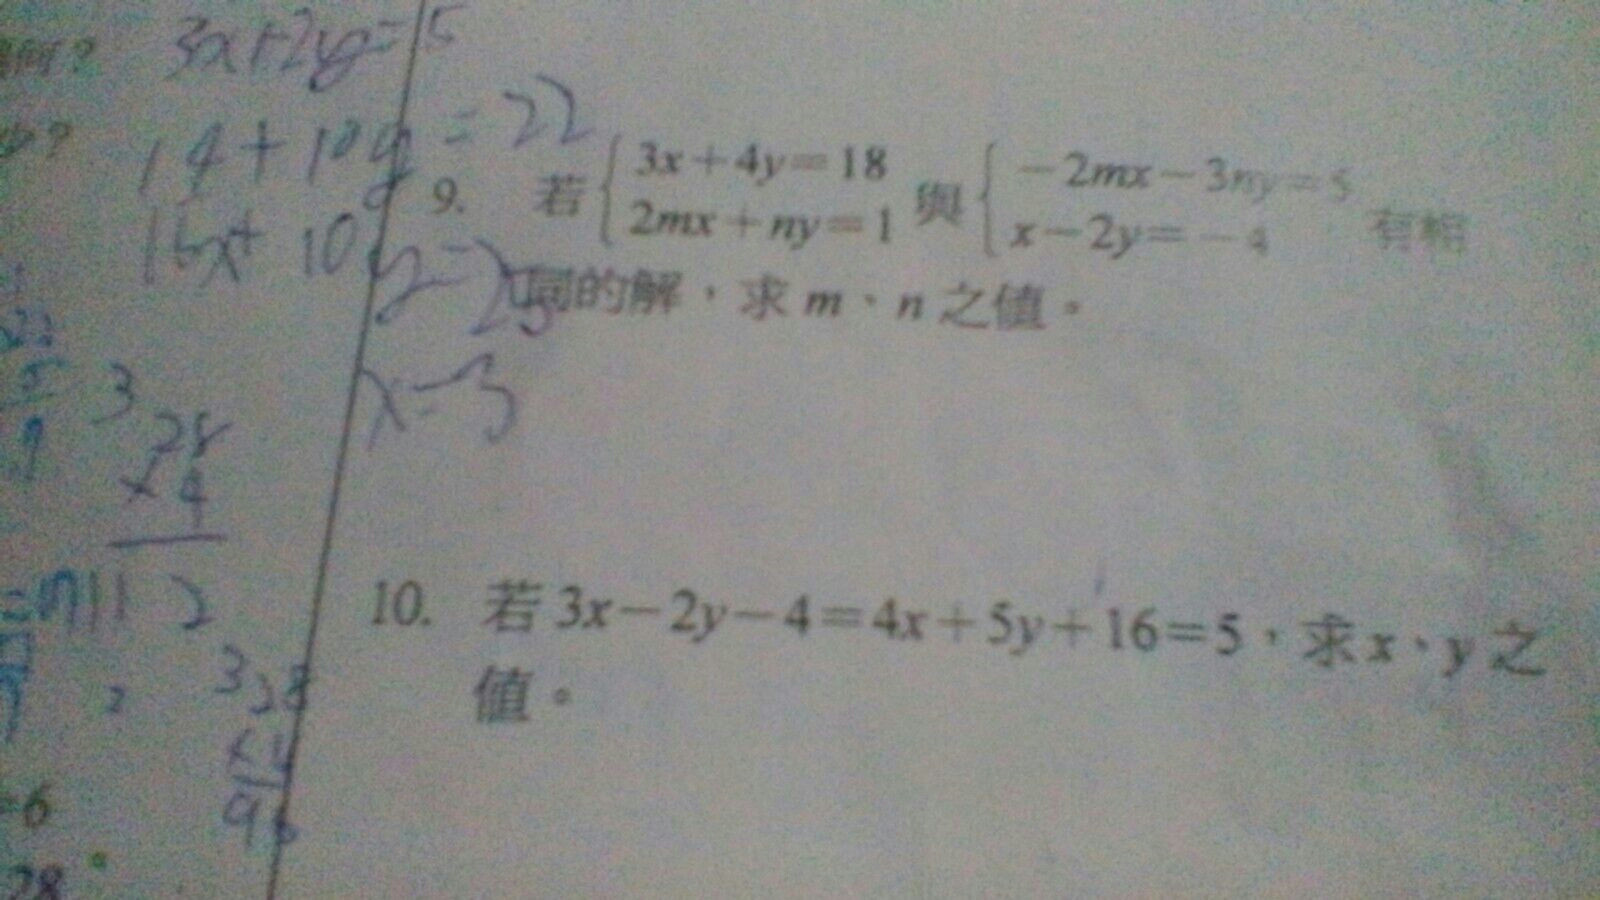 何?
3x+2y=15
14+10y=22
16x+10y=25
x=3
3
28
×4
112
2
328
98
6
28
9. 若 { 3x+4y=18 與 { -2mx-3ny=5 有相
2mx+ny=1 x-2y=-4
同的解，求 m、n 之值。
10. 若 3x-2y-4=4x+5y+16=5，求 x、y 之
值。